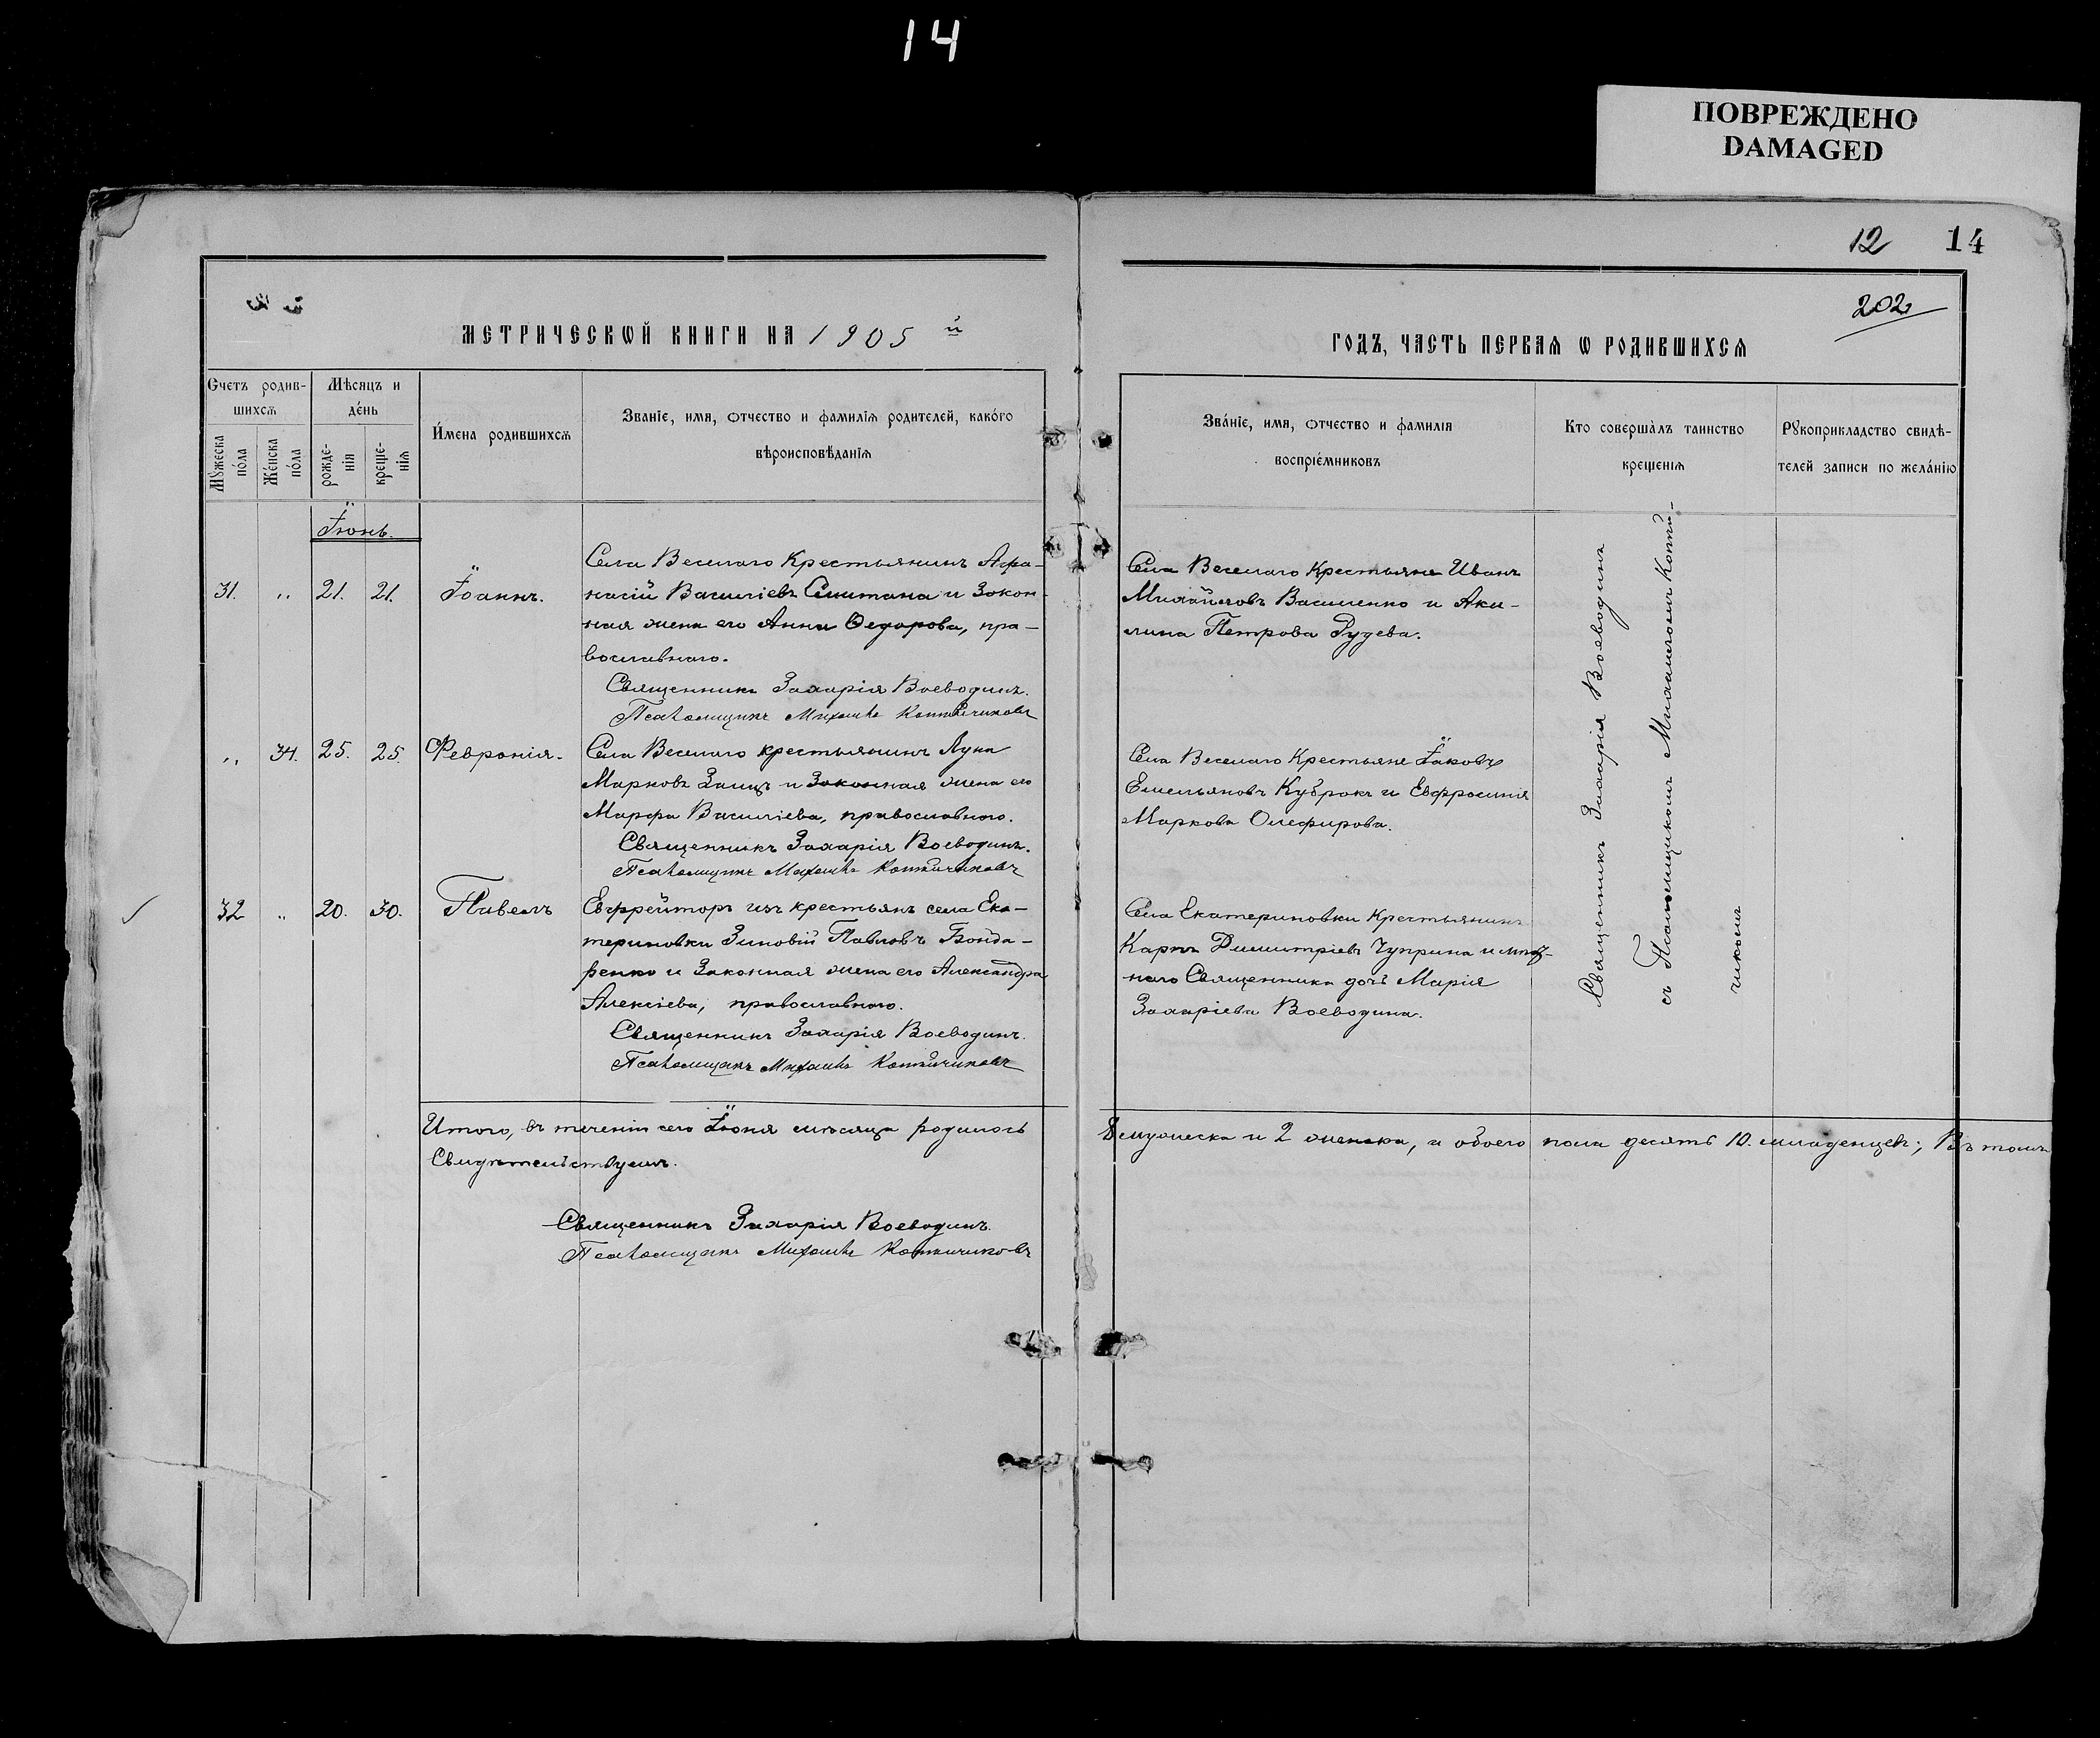 14
ПОВРЕЖДЕНО
DAMAGED
12 14
202
МЕТРИЧЕСКѠЙ КНИГИ НА 1905 й
ГОДЪ, ЧАСТЬ ПЕРВАѦ Ѡ РОДИВШИХСѦ
Счетъ родив-
шихсѧ
Мѣсяцъ и
де́нь
Мꙋжеска
по́ла
Же́нска
по́ла
рожде-
нїѧ
креще-
нїѧ
И́мена родившихсѧ
Званїе, имя, ѻтчество и фамилїѧ родителей, како́го
вѣроисповѣданїѧ
Зва́нїе, имя, ѻтчество и фамилїѧ
воспрїе́мниковъ
Кто соверша̀лъ таинство
крещенїѧ
Рꙋкоприкладство свидѣ-
телей записи по жела́нїю
Їюнь.
31. „ 21. 21. Їоаннъ.
Села Веселаго Крестьянинъ Афа-
насій Василіевъ Сметана и Закон-
ная жена его Анна Ѳедорова, пра-
вославнаго.
Священникъ Захарія Воеводинъ.
Псаломщикъ Михаилъ
Села Веселаго Крестьяне Иванъ
Михайловъ Василенко и Аки-
лина Петрова Рудева.
„ 34. 25. 25. Февронія.
Села Веселаго крестьянинъ Лука
Марковъ Заяцъ и Законная жена его
Марфа Василіева, православнаго.
Священникъ Захарія Воеводинъ.
Псаломщикъ Михаилъ
Села Веселаго Крестьяне Їаковъ
Емельяновъ Кубракъ и Евфросинія
Маркова Олефирова.
32 „ 20. 30. Павелъ
Ефрейторъ изъ крестьянъ села Ека-
териновки Зиновій Павловъ Бонда-
ренко и Законная жена его Александра
Алексіева, православнаго.
Священникъ Захарія Воеводинъ.
Псаломщикъ Михаилъ
Села Екатериновки Крестьянинъ
Карпъ Димитріевъ Чуприна и мѣст-
наго Священника дочь Марія
Захаріева Воеводина.
Священникъ Захарія Воеводинъ
съ Псаломщикомъ Михаиломъ
Итого, въ теченіи сего Їюня мѣсяца родилось 8 мужеска и 2 женска, а обоего пола десять 10. младенцевъ; Въ томъ
Свидѣтельствуемъ.
Священникъ Захарія Воеводинъ.
Псаломщикъ Михаилъ